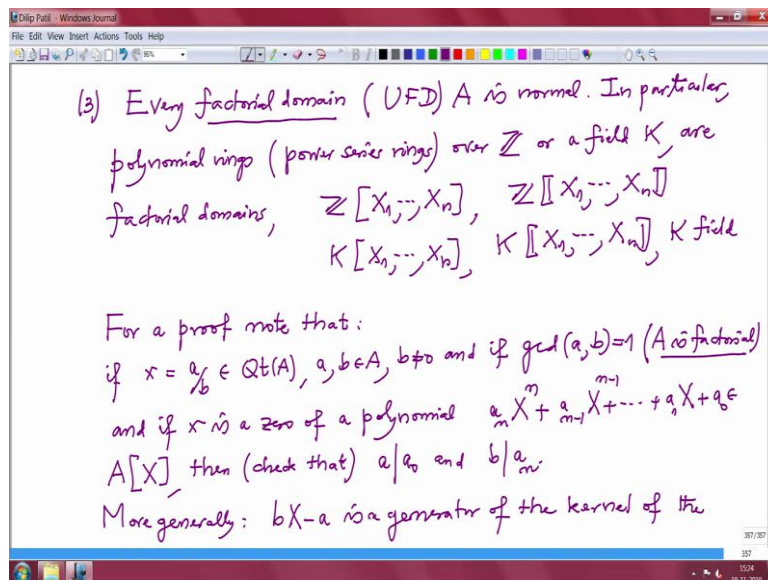 Dilip Patil - Windows Journal
File Edit View Insert Actions Tools Help
96%
(3) Every factorial domain (UFD) A is normal. In particular,
polynomial rings (power series rings) over ℤ or a field K, are
factorial domains, ℤ[X₁,⋯,Xₙ], ℤ⟦X₁,⋯,Xₙ⟧
K[X₁,⋯,Xₙ], K⟦X₁,⋯,Xₙ⟧, K field
For a proof note that:
if x = a/b ∈ Qt(A), a,b∈A, b≠0 and if gcd(a,b)=1 (A is factorial)
and if x is a zero of a polynomial aₘXᵐ + aₘ₋₁Xᵐ⁻¹+⋯+a₁X+a₀∈
A[X], then (check that) a|a₀ and b|aₘ.
More generally: bX-a is a generator of the kernel of the
357/357
357
15:24